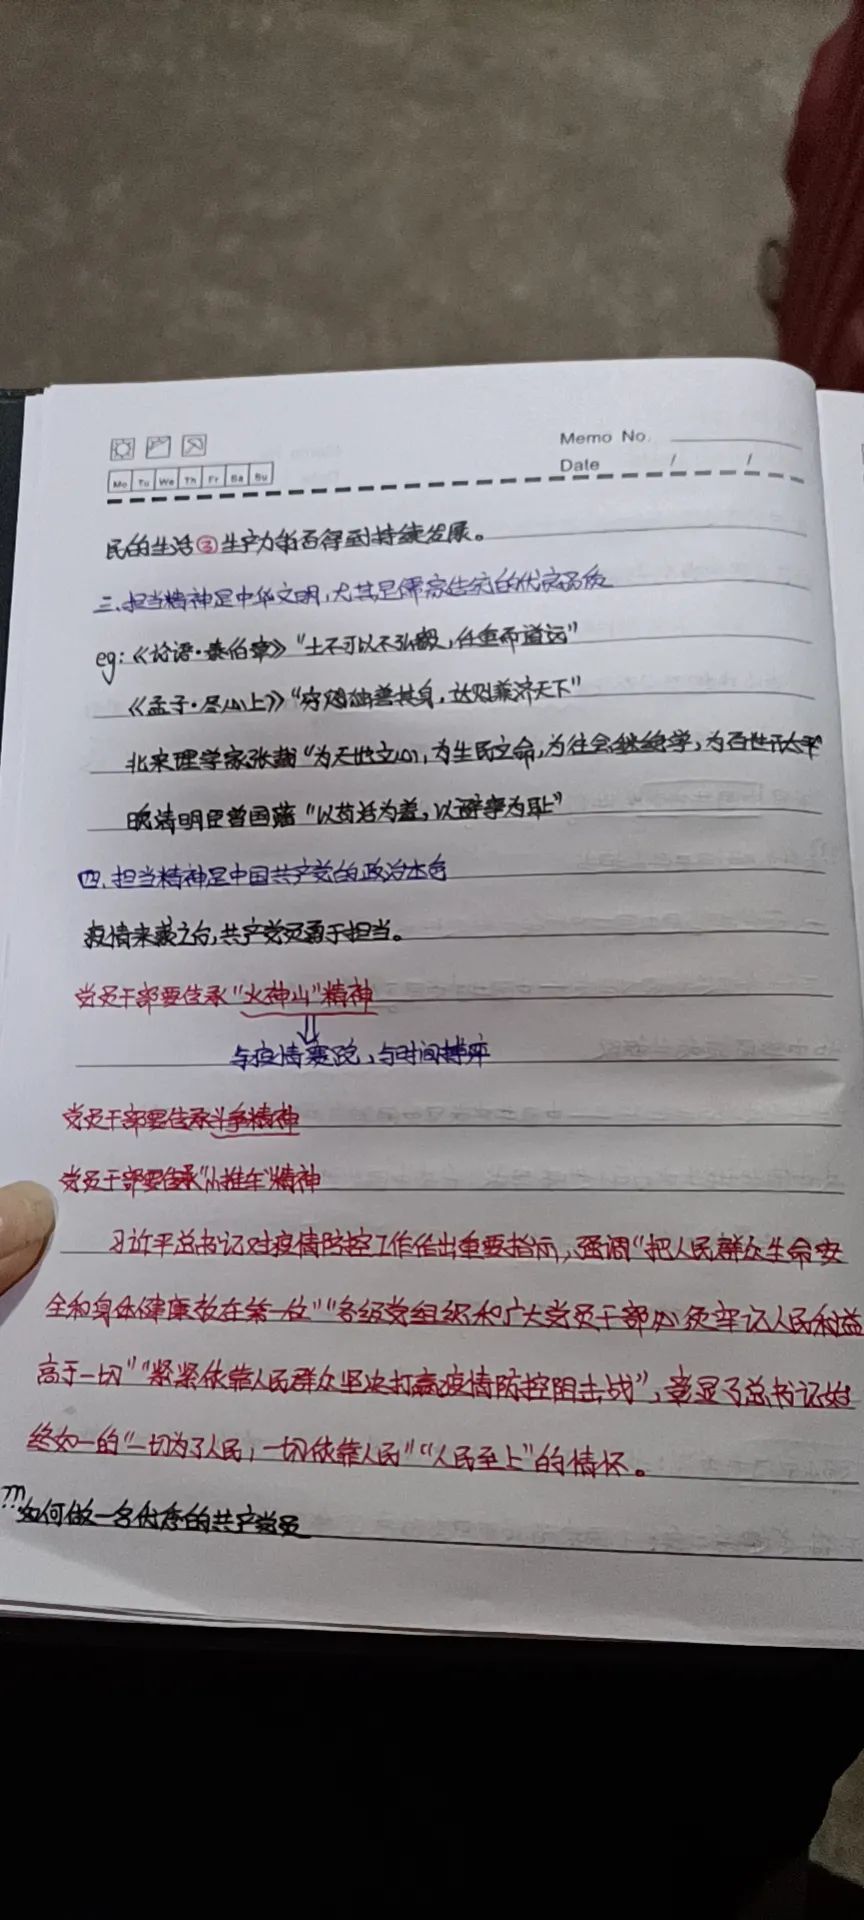 Memo No.
Date / /
Mo Tu We Th Fr Sa Su
民的生活③生产力能否得到持续发展。
三.担当精神是中华文明,尤其是儒家传统的优良品质
eg:《论语·泰伯章》“士不可以不弘毅,任重而道远”
《孟子·尽心上》“穷则独善其身,达则兼济天下”
北宋理学家张载“为天地立心,为生民立命,为往会继绝学,为百世开太平
晚清明臣曾国藩“以苟活为羞,以避事为耻”
四.担当精神是中国共产党的政治本色
疫情来袭之后,共产党员勇于担当。
党员干部要传承“火神山”精神
与疫情赛跑,与时间搏弈
党员干部要传承斗争精神
党员干部要传承“小推车”精神
习近平总书记对疫情防控工作作出重要指示,强调“把人民群众生命安
全和身体健康放在第一位”“各级党组织和广大党员干部必须牢记人民利益
高于一切”“紧紧依靠人民群众坚决打赢疫情防控阻击战”,彰显了总书记始
终如一的“一切为了人民,一切依靠人民”“人民至上”的情怀。
???如何做一名优秀的共产党员